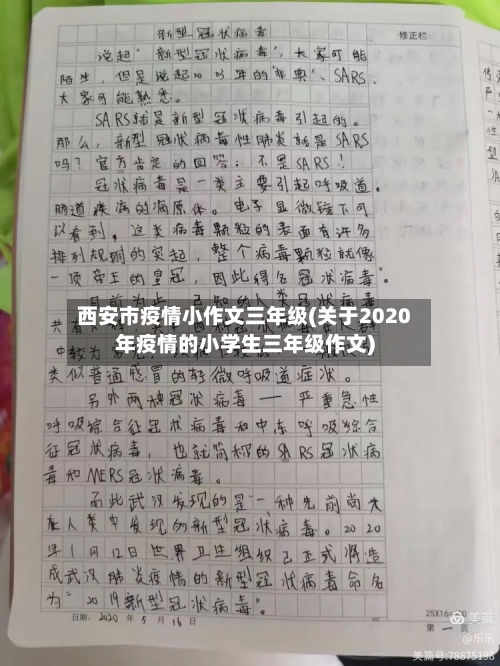 新型冠状病毒
修正栏
说起"新型冠状病毒",大家可能
陌生,但是说起2003年的"非典"、SARS、
大家可能熟悉。
SARS就是新型冠状病毒引起的。
那么,新型冠状病毒性肺炎就是SARS
吗?官方肯定的回答:不是SARS!
冠状病毒是一类主要引起呼吸道、
肠道疾病的病原体。电子显微镜下可
以看到,这类病毒颗粒的表面有许多
排列规则的突起,整个病毒颗粒就像
一顶帝王的皇冠,因此得名冠状病毒。
西安市疫情小作文三年级(关于2020
年疫情的小学生三年级作文)
类似普通感冒的轻微呼吸道症状。
另外两种冠状病毒——严重急性
呼吸综合征冠状病毒和中东呼吸综合
征冠状病毒,也就简称的SARS冠状病
毒和MERS冠状病毒。
而此武汉发现的是一种先前尚未
在人类中发现的新型冠状病毒。2020
年1月12日世界卫生组织已正式将造
成武汉肺炎疫情的新型冠状病毒命名
为"2019新型冠状病毒"。
日期: 2020 年 5 月 16 日
第 一 页
美篇
@乐乐
美篇号:78875198